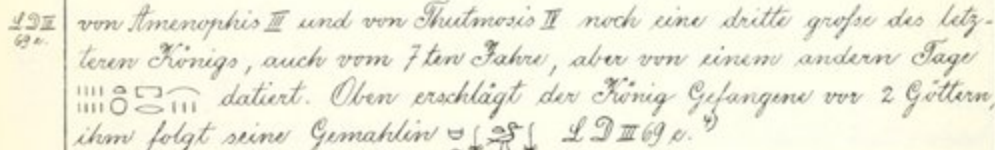 L D III von Amenophis III und von Thutmosis IV noch eine dritte große des letz-
69 e. teren Königs, auch vom 7ten Jahre, aber von einem andern Tage
datiert. Oben erschlägt der König Gefangene vor 2 Göttern,
ihm folgt seine Gemahlin L D III 69 e.